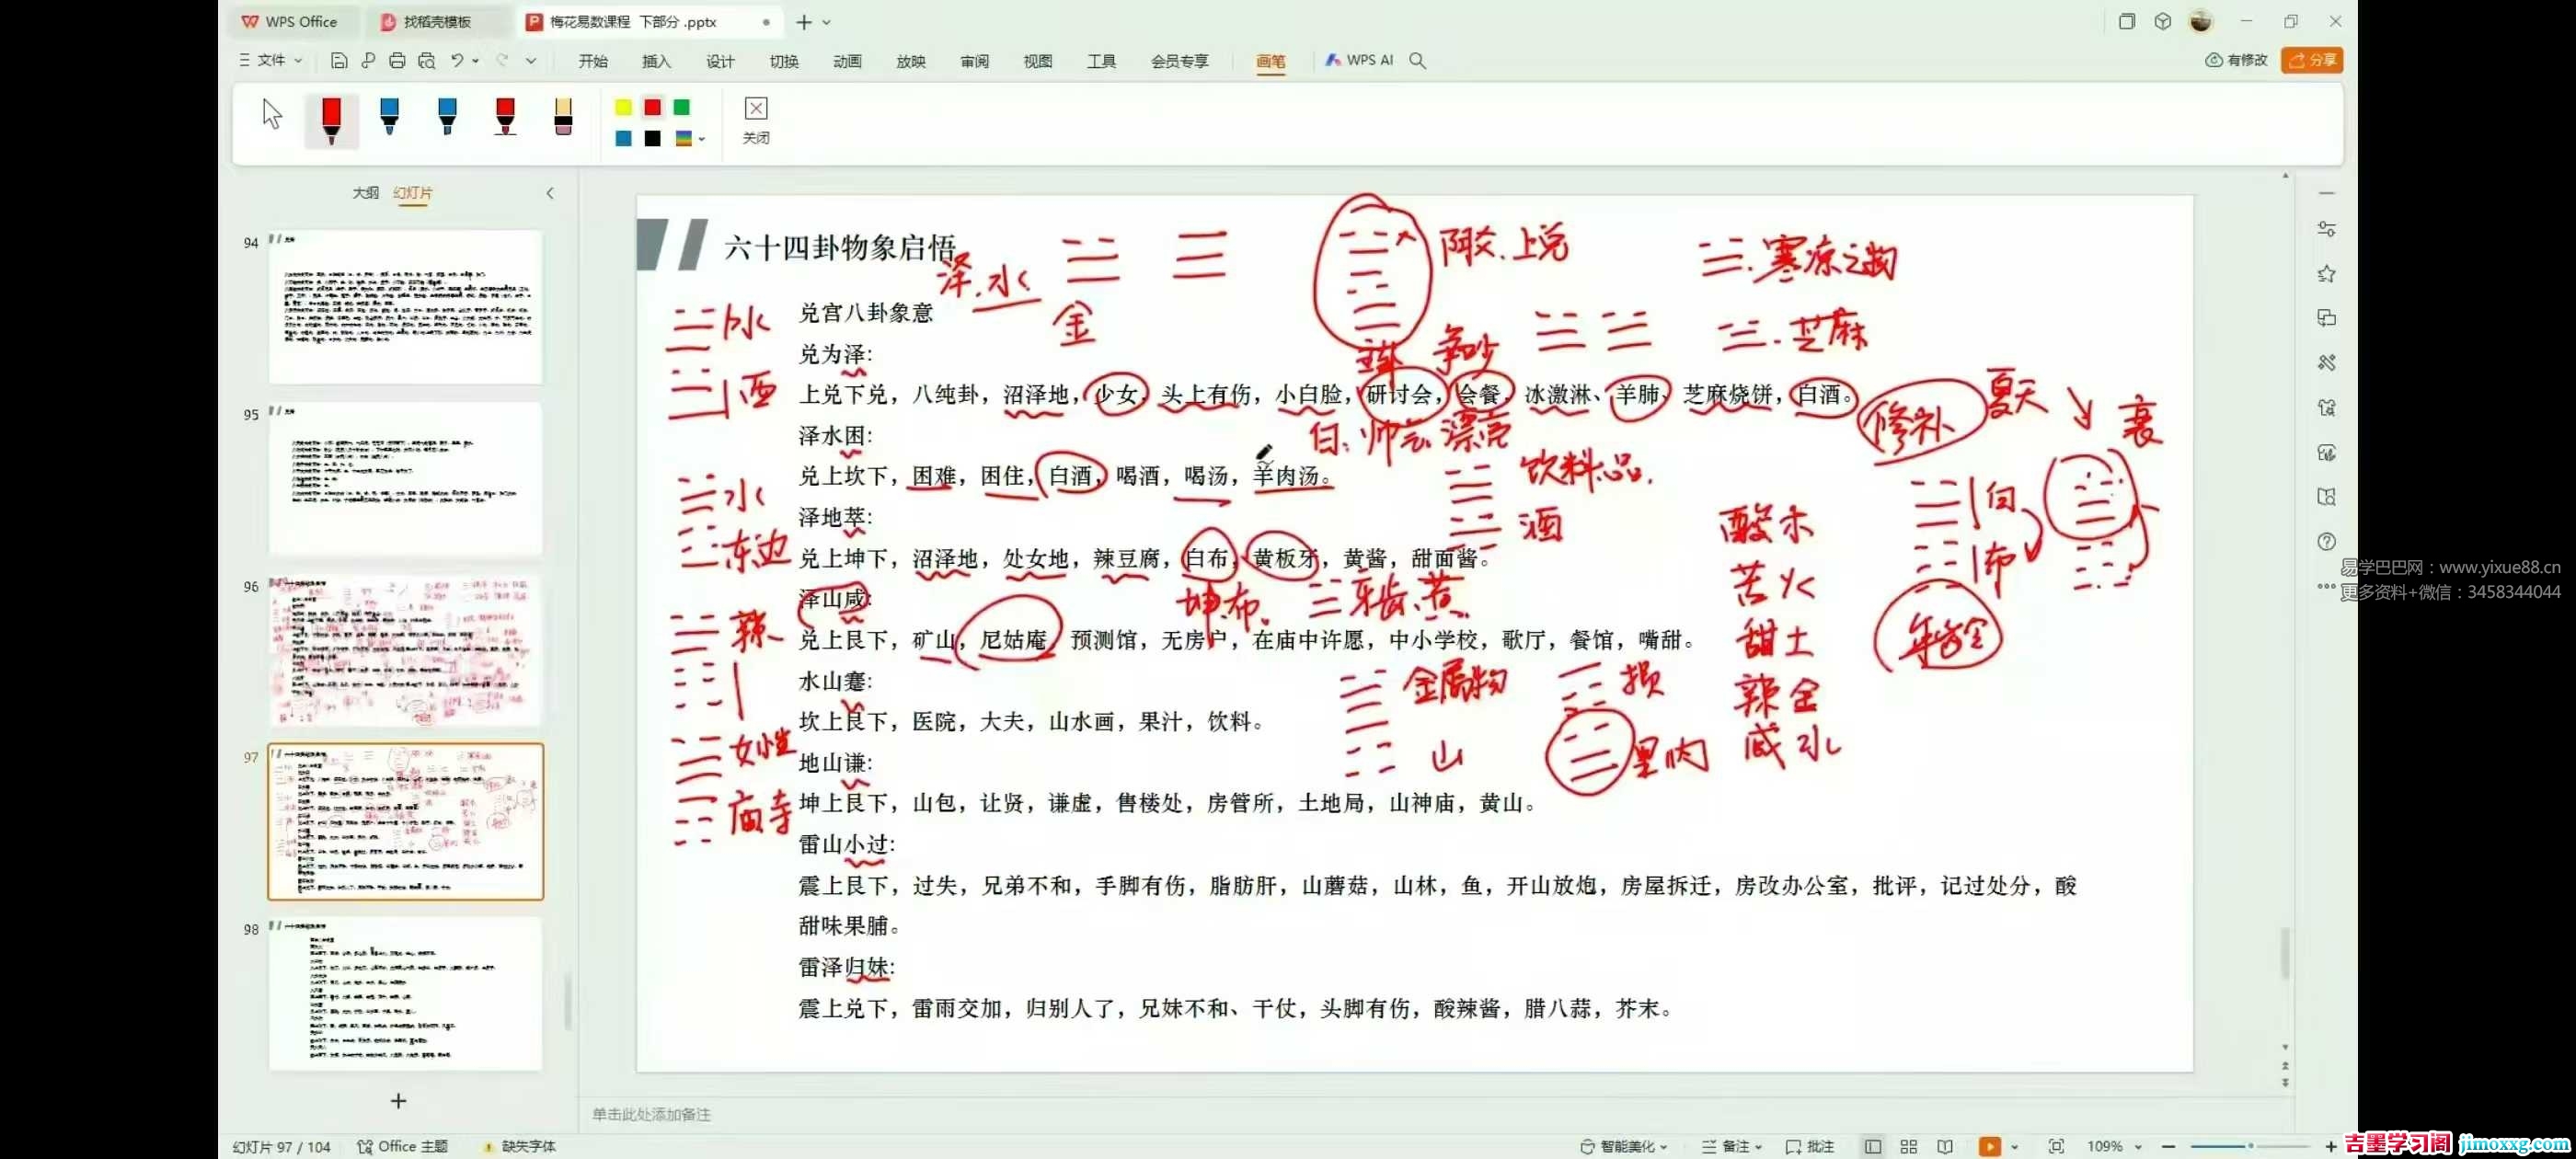 WPS Office
找稻壳模板
梅花易数课程 下部分 .pptx
文件
开始 插入 设计 切换 动画 放映 审阅 视图 工具 会员专享 画笔 WPS AI
有修改
分享
关闭
大纲 幻灯片
94
95
96
97
98
六十四卦物象启悟
泽.水
金
阴爻.上兑
寒凉之物
兑宫八卦象意
水
争吵
芝麻
兑为泽:
西
上兑下兑，八纯卦，沼泽地，少女，头上有伤，小白脸，研讨会，会餐，冰激淋、羊肺、芝麻烧饼，白酒。
修补
夏天
衰
泽水困:
白:
漂亮
兑上坎下，困难，困住，白酒，喝酒，喝汤，羊肉汤。
饮料品.
水
白
泽地萃:
酒
酸木
东边
布
兑上坤下，沼泽地，处女地，辣豆腐，白布，黄板牙，黄酱，甜面酱。
苦火
泽山咸:
坤.布.
牙齿.黄
辣
兑上艮下，矿山，尼姑庵，预测馆，无房户，在庙中许愿，中小学校，歌厅，餐馆，嘴甜。
甜土
水山蹇:
金属物
损
辣金
坎上艮下，医院，大夫，山水画，果汁，饮料。
女性
山
咸水
地山谦:
坤上艮下，山包，让贤，谦虚，售楼处，房管所，土地局，山神庙，黄山。
庙寺
雷山小过:
震上艮下，过失，兄弟不和，手脚有伤，脂肪肝，山蘑菇，山林，鱼，开山放炮，房屋拆迁，房改办公室，批评，记过处分，酸
甜味果脯。
雷泽归妹:
震上兑下，雷雨交加，归别人了，兄妹不和、干仗，头脚有伤，酸辣酱，腊八蒜，芥末。
易学巴巴网：www.yixue88.cn
更多资料+微信：3458344044
单击此处添加备注
幻灯片 97 / 104
Office 主题
缺失字体
智能美化
备注
批注
109%
吉墨学习阁 jimoxxg.com